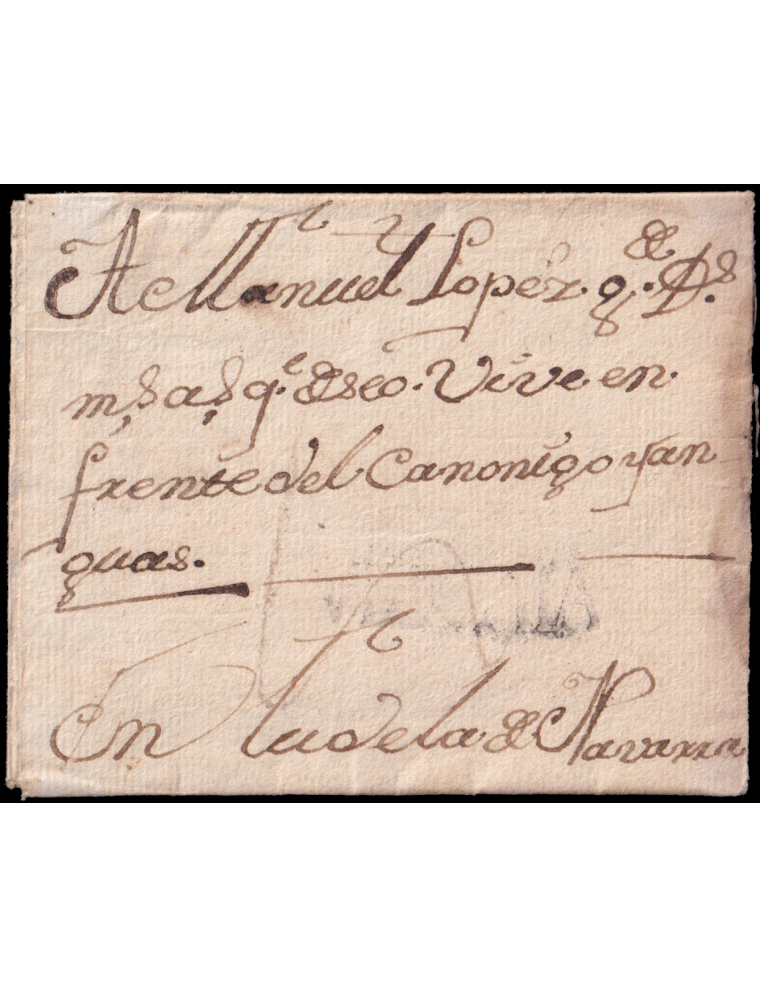 A Manuel Lopez. q.e g.de D.s
m.s a.s q.e deseo. Vive en
frente del Canonigo yan
guas.
En tudela de Navarra